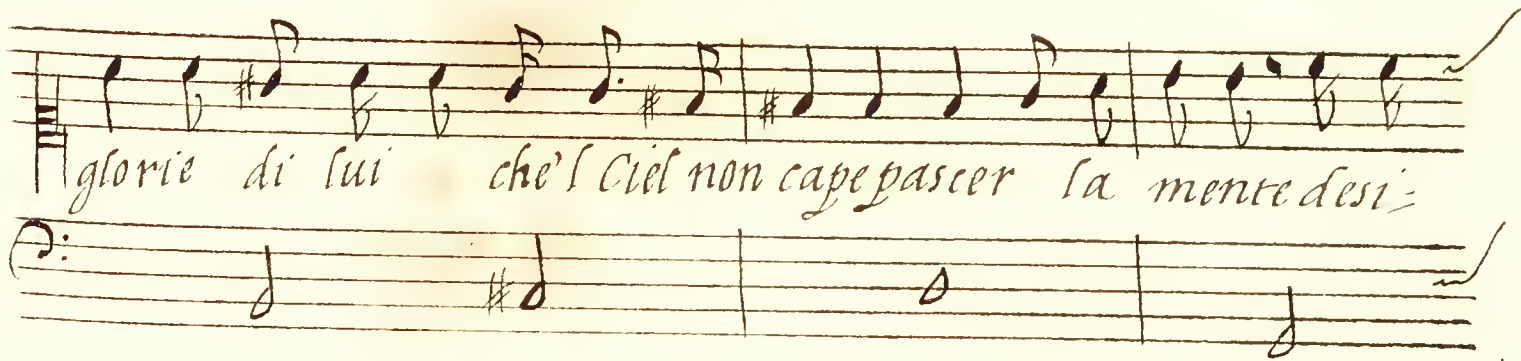 glorie di lui che'l Ciel non cape pascer la mente desi=